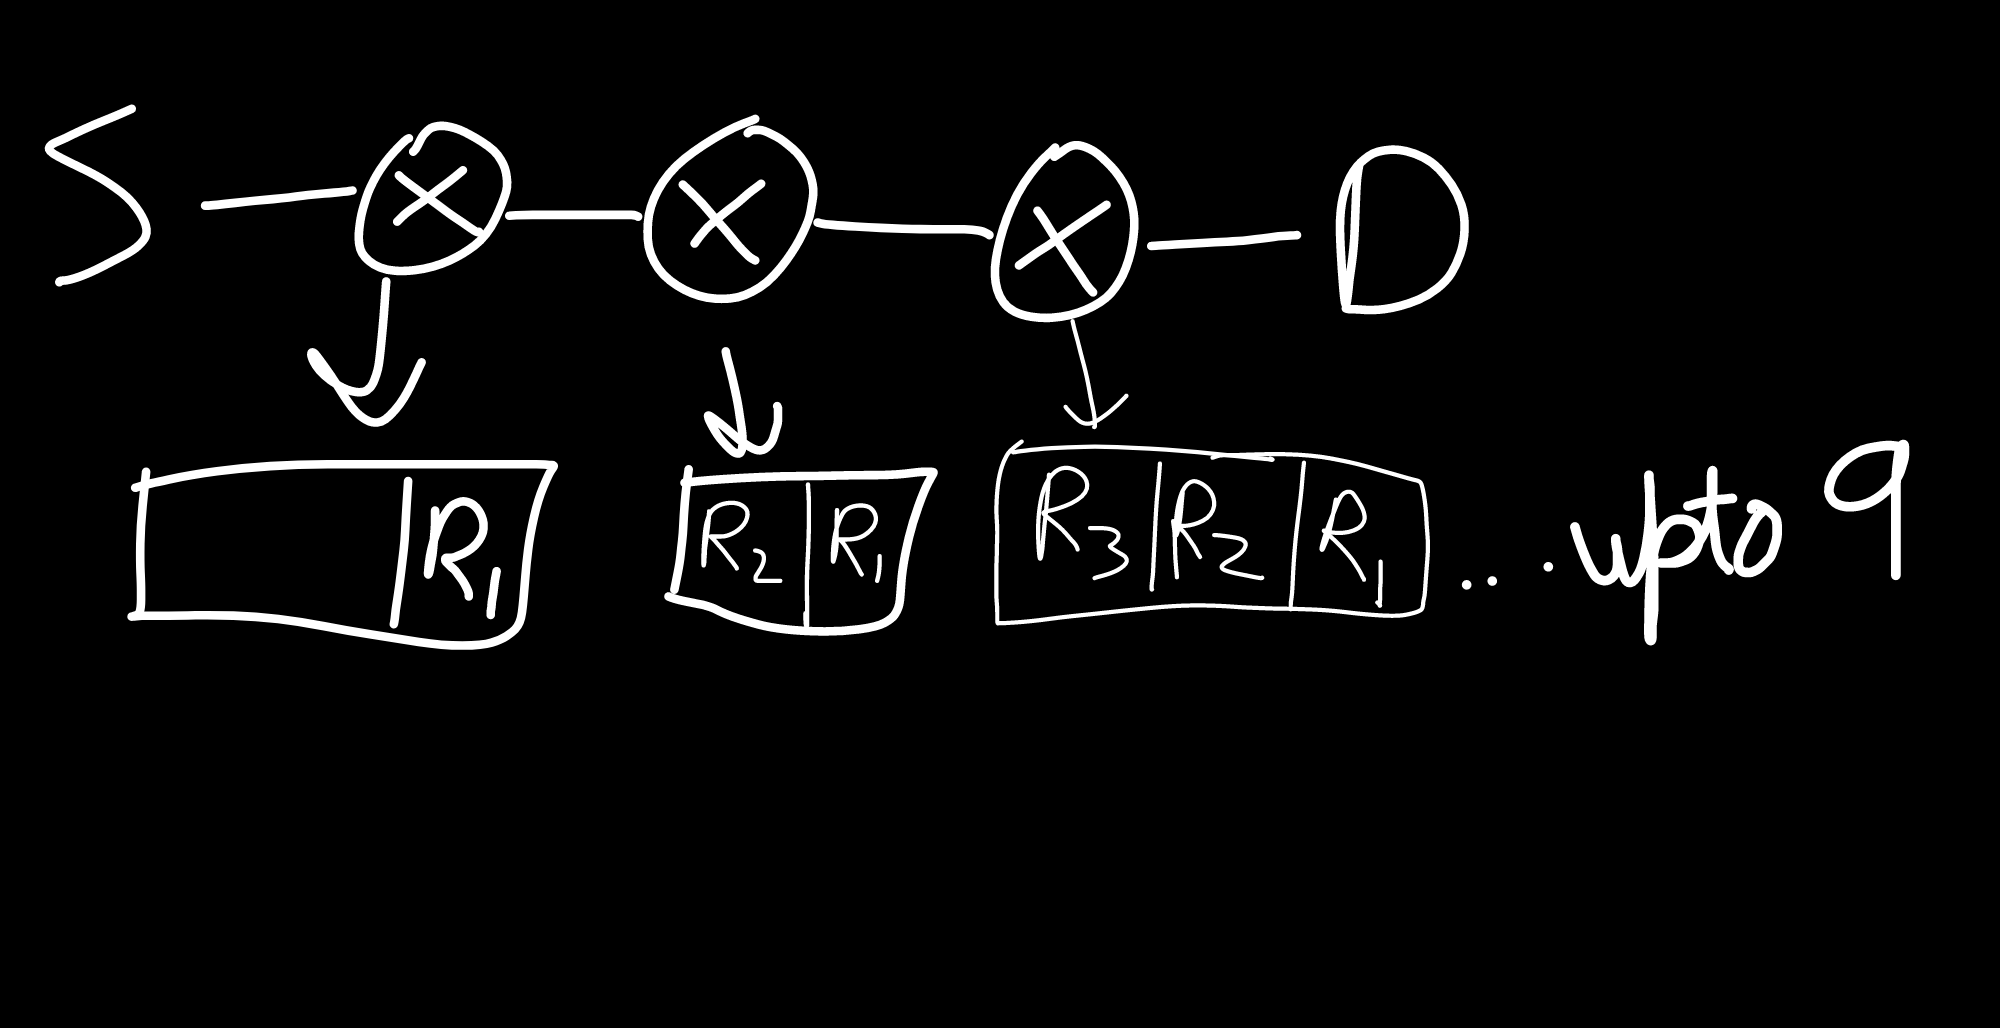 S X X X D
R1 R2 R1 R3 R2 R1 ... upto 9